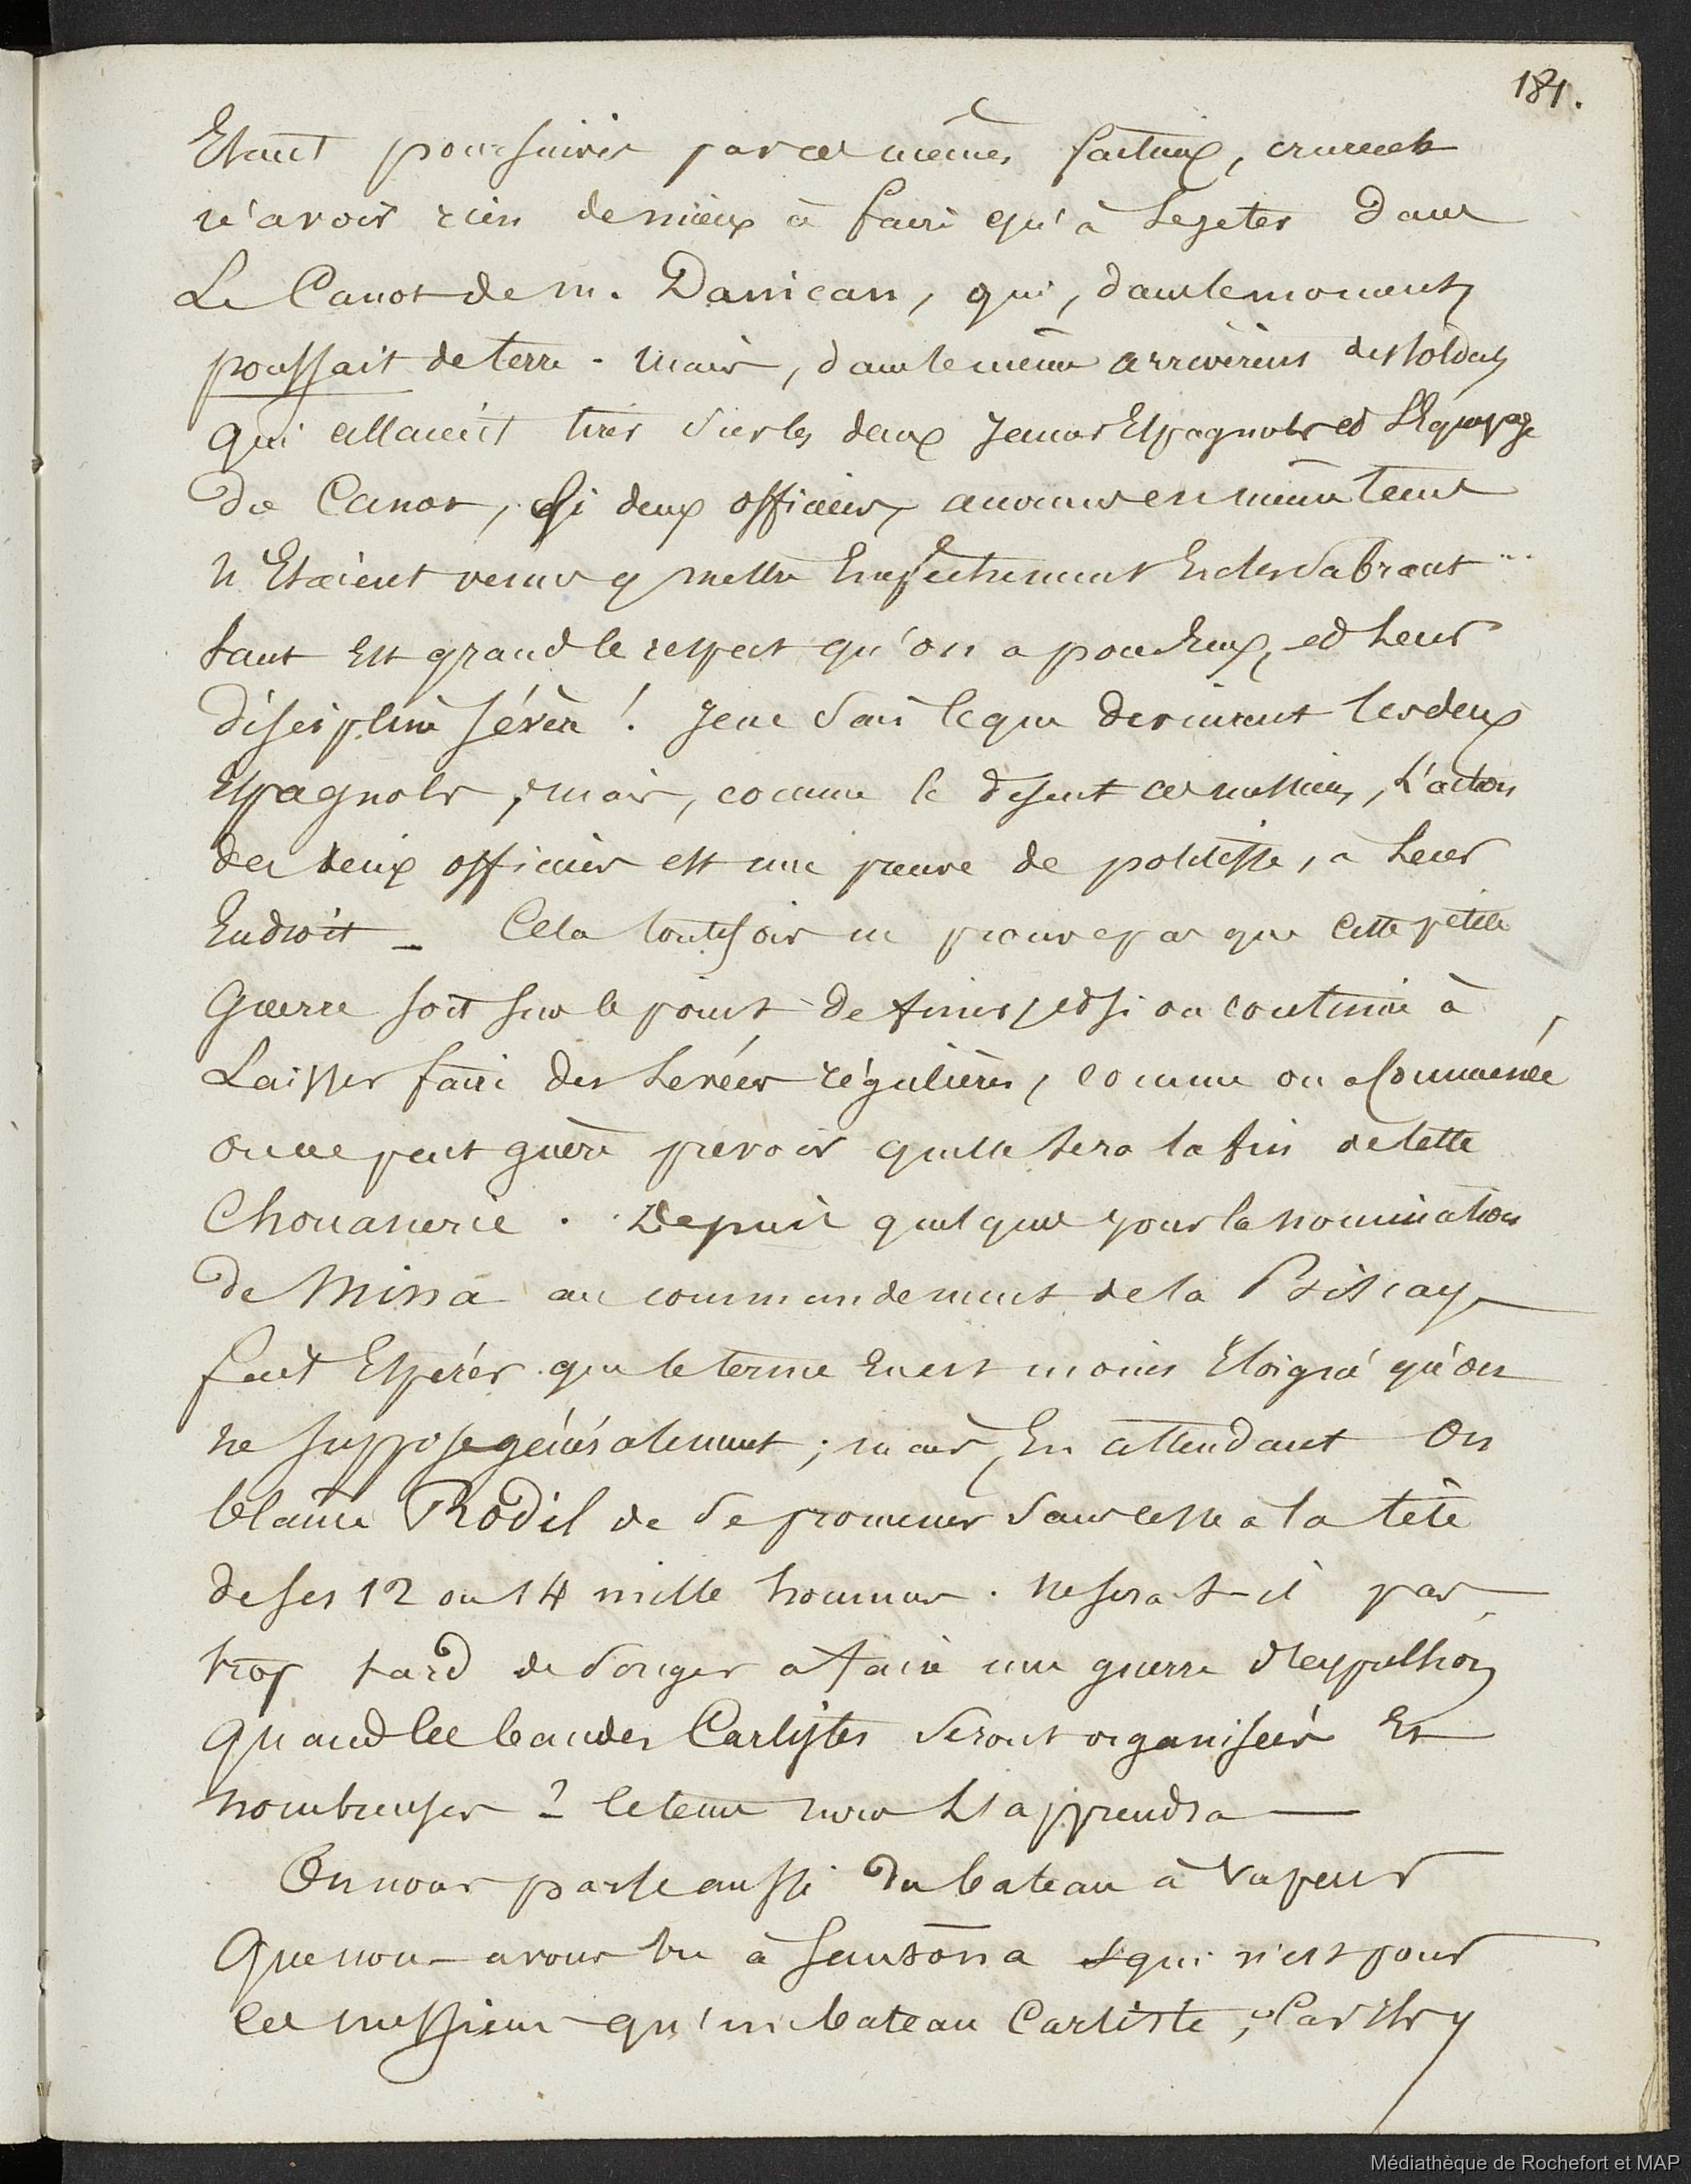 181.
Etant poursuivis par ces mêmes factieux, crurent
n'avoir rien de mieux à faire qu'à se jeter dans
Le Canot de m. Danican, qui, dans le moment,
poussait de terre. mais, dans le même arrivèrent des soldats
qui allaient tirer sur les deux jeunes Espagnols et l'Equipage
du Canot, si deux officiers, accourus en même tems
n'Etaient venus y mettre Empêchement En les sabrant ...
tant Est grand le respect qu'on a pour Eux, et Leur
discipline sévère ! Je ne sais ce que devinrent les deux
Espagnols ; mais, comme le disent ces messieurs, L'action
des deux officiers est une preuve de politesse, à Leur
Endroit _ Cela toutefois ne prouve pas que Cette petite
Guerre soit sur le point de finir, et si on continue à
Laisser faire des Levées régulières, comme on a Commencé
on ne peut guère prévoir quelle sera la fin de Cette
Chouanerie . Depuis quelques jours la nomination
de Mina au commandement de la Biscaye
fait Espérer que le terme En est moins Eloigné qu'on
ne suppose généralement ; mais, En attendant On
blame Rodil de se promener sans cesse à la tête
de ses 12 ou 14 mille hommes . ne sera-t-il pas
trop tard de songer à faire une guerre d'expulsion
quand les bandes Carlistes seront organisées Et
nombreuses ? le tems nous L'apprendra —
On nous parle aussi du bateau à Vapeur
Que nous avons vu à Santona et qui n'est pour
ces messieurs qu'un bateau Carliste ; Car Ils y
Médiathèque de Rochefort et MAP